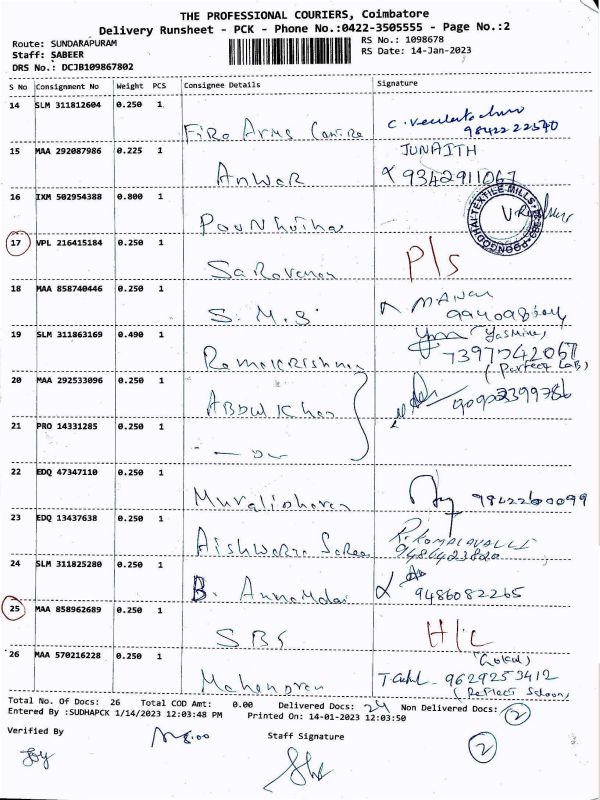 THE PROFESSIONAL COURIERS, Coimbatore
Delivery Runsheet - PCK - Phone No.:0422-3505555 - Page No.:2
Route: SUNDARAPURAM
Staff: SABEER
DRS No.: DCJB109867802
RS No.: 1098678
RS Date: 14-Jan-2023
S No Consignment No Weight PCS Consignee Details Signature
14 SLM 311812604 0.250 1
Fire Arms Centre
15 MAA 292087986 0.225 1 JUNAITH
Anwar 9342911067
16 IXM 502954388 0.800 1
17 VPL 216415184 0.250 1
Saravanan P/S
18 MAA 858740446 0.250 1
S.M.S
19 SLM 311863169 0.490 1 (Yasmine)
Ramakrishnan 7397742067
(Perfect Lab)
20 MAA 292533096 0.250 1
Abdul Khar
21 PRO 14331285 0.250 1
— Do —
22 EDQ 47347110 0.250 1
Muralidharan 9842260099
23 EDQ 13437638 0.250 1
Aishwarya
24 SLM 311825280 0.250 1
B. Annamalai 9486082265
25 MAA 858962689 0.250 1
SBS H/C
26 MAA 570216228 0.250 1 (Gokul)
Mahendran 9629253412
Total No. Of Docs: 26 Total COD Amt: 0.00 Delivered Docs: 24 Non Delivered Docs: 2
Entered By :SUDHAPCK 1/14/2023 12:03:48 PM Printed On: 14-01-2023 12:03:50
Verified By Staff Signature
2